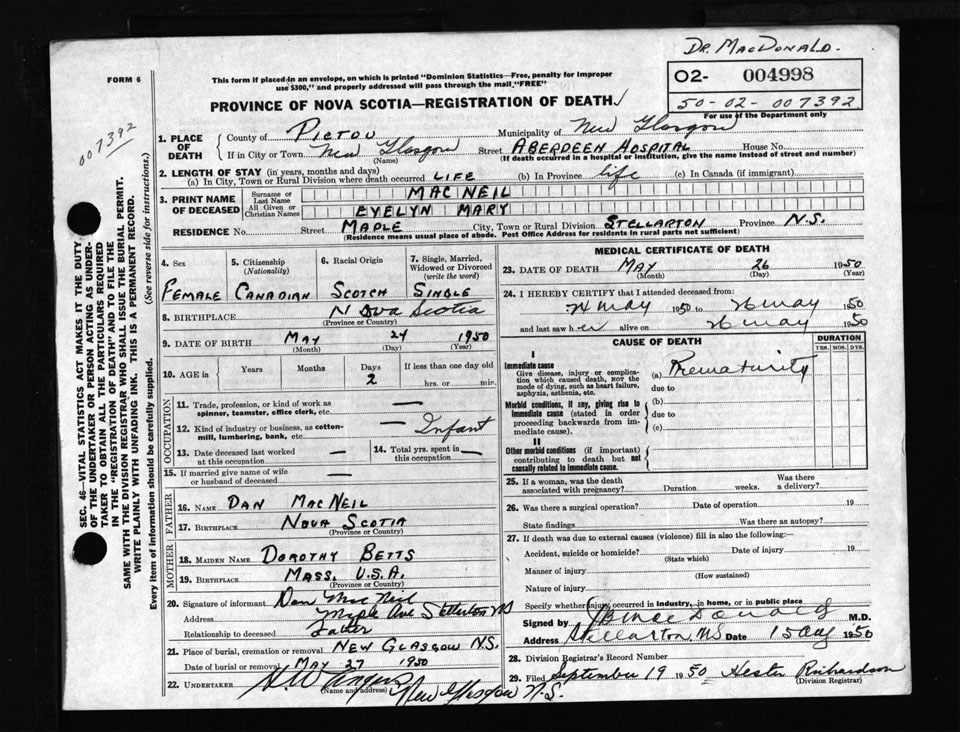 DR. MACDONALD.
FORM 6
This form if placed in an envelope, on which is printed "Dominion Statistics—Free, penalty for improper
use $300," and properly addressed will pass through the mail "FREE"
02- 004998
50-02-007392
For use of the Department only
PROVINCE OF NOVA SCOTIA—REGISTRATION OF DEATH
007392
1. PLACE OF DEATH
County of PICTOU Municipality of New Glasgow
If in City or Town New Glasgow Street ABERDEEN HOSPITAL House No.
(Name) (If death occurred in a hospital or institution, give the name instead of street and number)
2. LENGTH OF STAY (in years, months and days)
(a) In City, Town or Rural Division where death occurred LIFE (b) In Province life (c) In Canada (if immigrant)
3. PRINT NAME OF DECEASED
Surname or Last Name MACNEIL
All Given or Christian Names EVELYN MARY
RESIDENCE No. Street MAPLE City, Town or Rural Division STELLARTON Province N.S.
(Residence means usual place of abode. Post Office Address for residents in rural parts not sufficient)
4. Sex 5. Citizenship (Nationality) 6. Racial Origin 7. Single, Married, Widowed or Divorced (write the word)
FEMALE CANADIAN SCOTCH SINGLE
8. BIRTHPLACE Nova Scotia
(Province or Country)
9. DATE OF BIRTH MAY 24 1950
(Month) (Day) (Year)
10. AGE in Years Months Days If less than one day old
2 hrs. or min.
OCCUPATION
11. Trade, profession, or kind of work as
spinner, teamster, office clerk, etc. —
12. Kind of industry or business, as cotton-
mill, lumbering, bank, etc. — Infant
13. Date deceased last worked
at this occupation —
14. Total yrs. spent in
this occupation —
15. If married give name of wife
or husband of deceased —
FATHER
16. Name DAN MACNEIL
17. Birthplace NOVA SCOTIA
(Province or Country)
MOTHER
18. Maiden Name DOROTHY BETTS
19. Birthplace MASS. U.S.A.
(Province or Country)
20. Signature of informant Dan MacNeil
Address Maple Ave Stellerton NS
Relationship to deceased Father
21. Place of burial, cremation or removal NEW GLASGOW N.S.
Date of burial or removal MAY 27 1950
22. UNDERTAKER H.W. Angus New Glasgow N.S.
(Name and address)
MEDICAL CERTIFICATE OF DEATH
23. DATE OF DEATH MAY 26 1950
(Month) (Day) (Year)
24. I HEREBY CERTIFY that I attended deceased from:
24 May 1950 to 26 May 1950
and last saw her alive on 26 May 1950
CAUSE OF DEATH DURATION
YRS. MOS. DYS.
I
Immediate cause
Give disease, injury or complica-
tion which caused death, NOT the
mode of dying, such as heart failure,
asphyxia, asthenia, etc.
(a) Prematurity
due to
Morbid conditions, if any, giving rise to
immediate cause (stated in order
proceeding backwards from im-
mediate cause).
(b)
due to
(c)
II
Other morbid conditions (if important)
contributing to death but not
causally related to immediate cause.
25. If a woman, was the death
associated with pregnancy? Duration weeks. Was there a delivery?
26. Was there a surgical operation? Date of operation 19
State findings Was there an autopsy?
27. If death was due to external causes (violence) fill in also the following:—
Accident, suicide or homicide? Date of injury 19
(State which)
Manner of injury
(How sustained)
Nature of injury
Specify whether injury occurred in industry, in home, or in public place
Signed by MacDonald M.D.
Address Stellarton, NS Date 15 Aug 1950
28. Division Registrar's Record Number
29. Filed September 19 1950 Hester Richardson
(Division Registrar)
SEC. 46—VITAL STATISTICS ACT MAKES IT THE DUTY
OF THE UNDERTAKER OR PERSON ACTING AS UNDER-
TAKER TO OBTAIN ALL THE PARTICULARS REQUIRED
IN THE "REGISTRATION OF DEATH" AND TO FILE THE
SAME WITH THE DIVISION REGISTRAR WHO SHALL ISSUE THE BURIAL PERMIT.
WRITE PLAINLY WITH UNFADING INK. THIS IS A PERMANENT RECORD.
Every item of information should be carefully supplied. (See reverse side for instructions.)